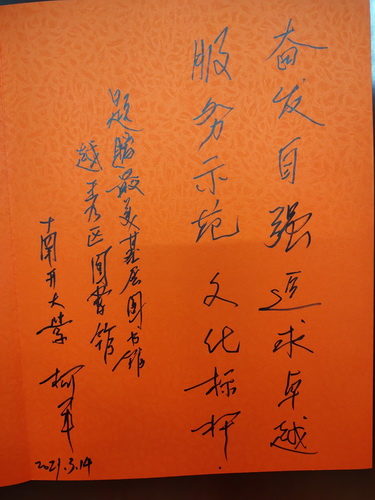 奋发自强追求卓越
服务示范文化标杆.
题赠最美基层图书馆
越秀区图书馆
南开大学 柯平
2021.3.14